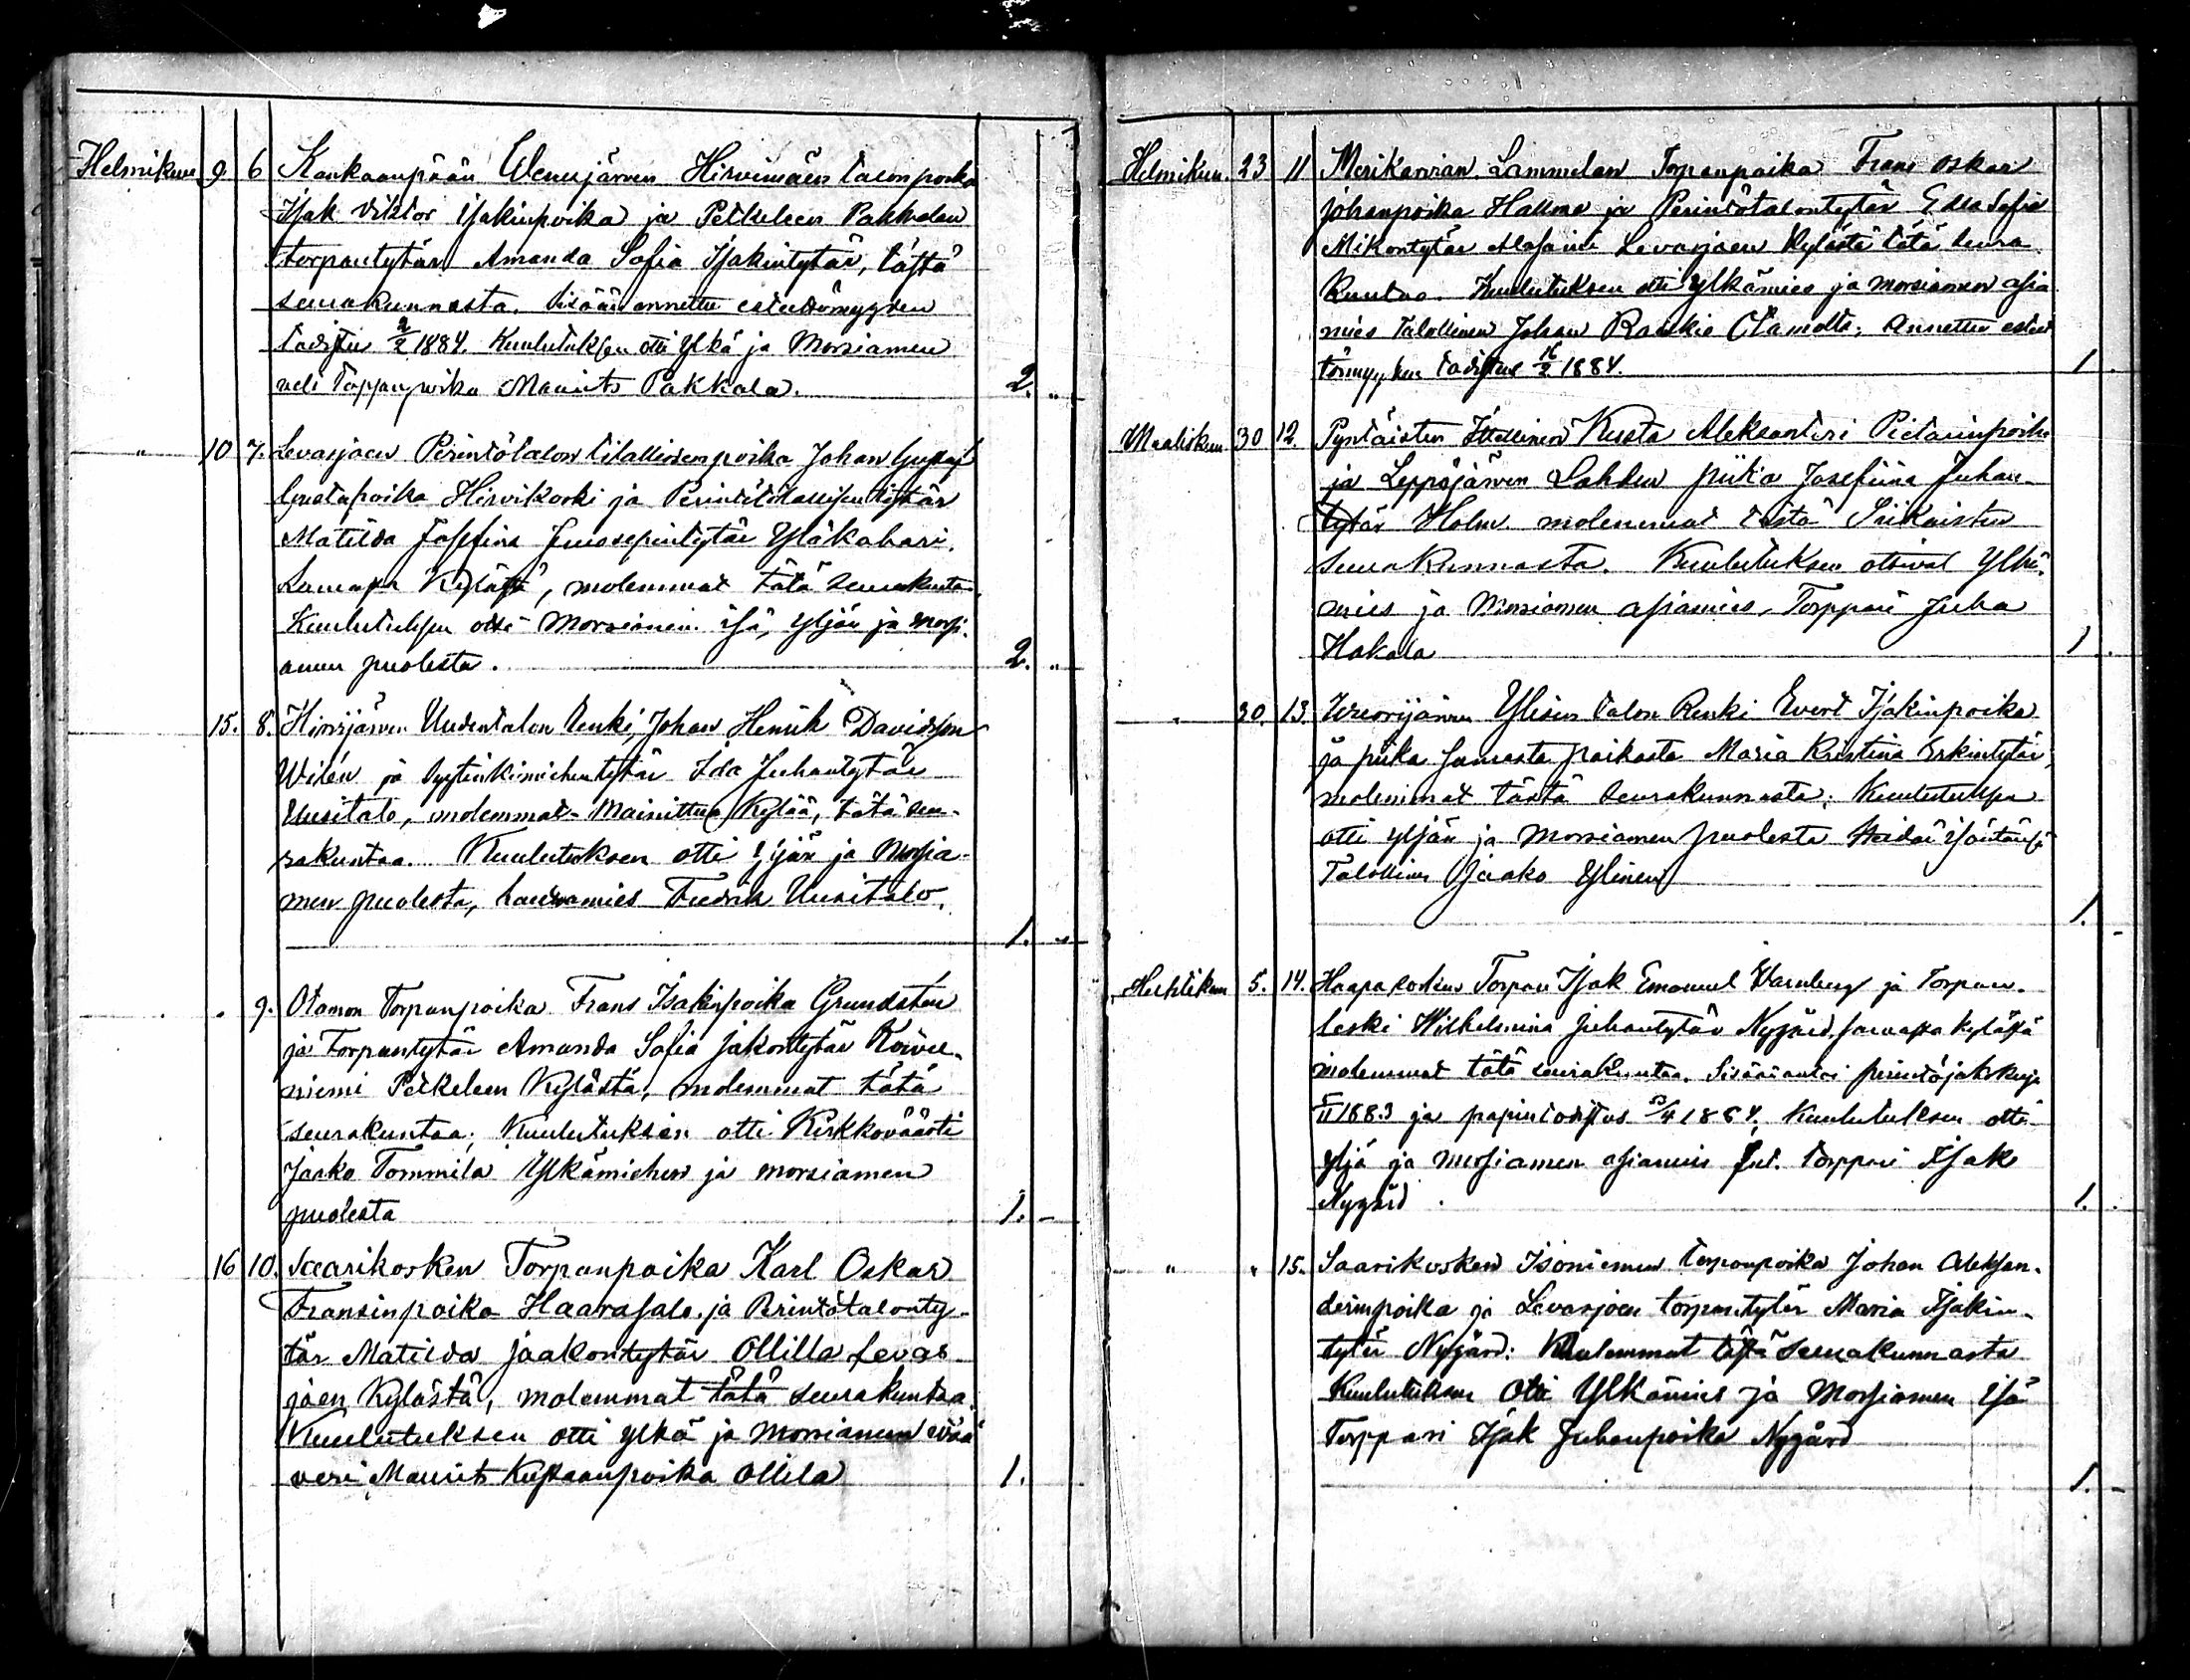 Helmikuu 9. 6 Kankaanpään Wenesjärven Hirvimäen talonpoika
Isak Viktor Isakinpoika ja Petkeleen Pakkalan
torpantytär Amanda Sofia Isakintytär, tästä
seurakunnasta. Sisään annettu esteettömyyden
todistus 9/2 1884. Kuulutuksen otti Ylkä ja Morsiamen
veli Torpanpoika Maurits Pakkala. 2. "
" 10 7. Levasjoen Perintötalon tilallisenpoika Johan Gustaf
Gustafpoika Hirvikoski ja Perintötilallisentytär
Matilda Josefina Juosepintytär Yläkahari,
Samasta Kylästä, molemmat tätä seurakuntaa.
Kuulutuksen otti Morsiamen isä, yljän ja morsi-
amen puolesta. 2. "
15. 8. Hirvijärven Uudentalon Renki, Johan Henrik Davidsson
Wilén ja Syytinkimiehentytär Ida Juhantytär
Uusitalo, molemmat Mainittua Kylää, tätä seu-
rakuntaa. Kuulutuksen otti Yljän ja Morsia-
men puolesta, lautamies Fredrik Uusitalo.
1. "
" 9. Otamon Torpanpoika Frans Isakinpoika Grundsten
ja Torpantytär Amanda Sofia Jakontytär Koivu-
niemi Petkeleen Kylästä, molemmat tätä
seurakuntaa; Kuulutuksen otti Kirkkoväärti
Jaako Tommila Ylkämiehen ja morsiamen
puolesta 1. -
16 10. Saarikosken Torpanpoika Karl Oskar
Fransinpoika Haarasalo ja Perintötalonty-
tär Matilda Jaakontytär Ollilla Levas-
joen Kylästä, molemmat tätä seurakuntaa.
Kuulutuksen otti ylkä ja morsiamen
Maurits Kustaanpoika Ollila 1.
Helmikuu. 23 11 Merikarvian Lammelan Torpanpoika Frans Oskar
Johanpoika Hallme ja Perintötalontytär Edla Sofia
Mikontytär Levasjoen Kylästä tätä seura-
kuntaa. Kuulutuksen otti Ylkämies ja morsiamen asia-
mies talollinen Johan Raukia Otamolta. Annettu esteet-
tömyyden todistus 16/2 1884. 1.
Maaliskuu 30 12. Pyntäisten Itsellinen Kusta Aleksanteri Pietarinpoika
ja Leppäjärven Lahden piika Josefiina Juhan-
tytär Holm molemmat tästä Siikaisten
seurakunnasta. Kuulutuksen ottivat Ylkä-
mies ja Morsiamen asiamies, Torppari Juha
Hakala 1.
" 30. 13. Wuorijärven Ylisen talon Renki Evert Isakinpoika
ja piika samasta paikasta Maria Kristina Erkintytär,
molemmat tästä seurakunnasta; Kuulutuksen
otti yljän ja morsiamen puolesta heidän isäntänsä
Talollinen Jaako Ylinen
1. -
Huhtikuu 5. 14. Haapakosken Torppari Isak Emanuel Warnberg ja Torpan-
leski Wilhelmina Juhantytär Nygård, samassa kylässä
molemmat tätä seurakuntaa. Sisäänantoi perintöjakokirja
1883 ja papintodistus 5/4 1884. Kuulutuksen otti
yljä ja morsiamen asiamies torppari Isak
Nygård 1.
" " 15. Saarikosken Isoniemen torpanpoika Johan Aleksan-
derinpoika ja Levasjoen torpantytär Maria Isakin-
tytär Nygård: Molemmat tästä seurakunnasta
Kuulutuksen Otti Ylkämies ja Morsiamen isä
Torppari Isak Juhanpoika Nygård
1. -